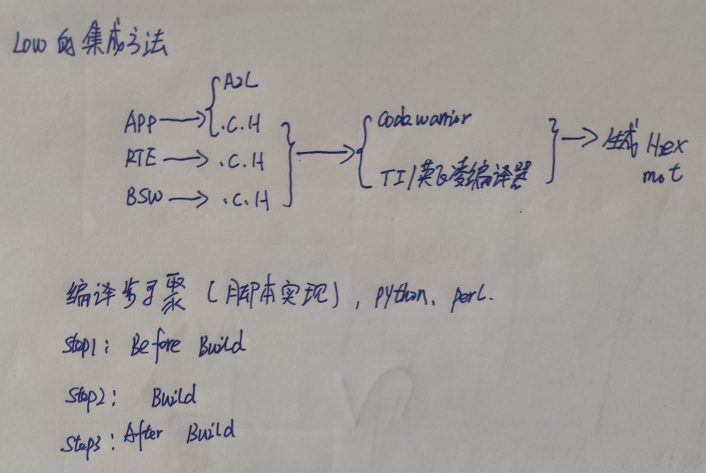 Low 的集成方法
A2L
APP → .C.H
RTE → .C.H
BSW → .C.H
→ Codewarrior
TI/英飞凌编译器
→ 生成 Hex
mot
编译步骤 (脚本实现), python, perl.
Step1: Before Build
Step2: Build
Step3: After Build